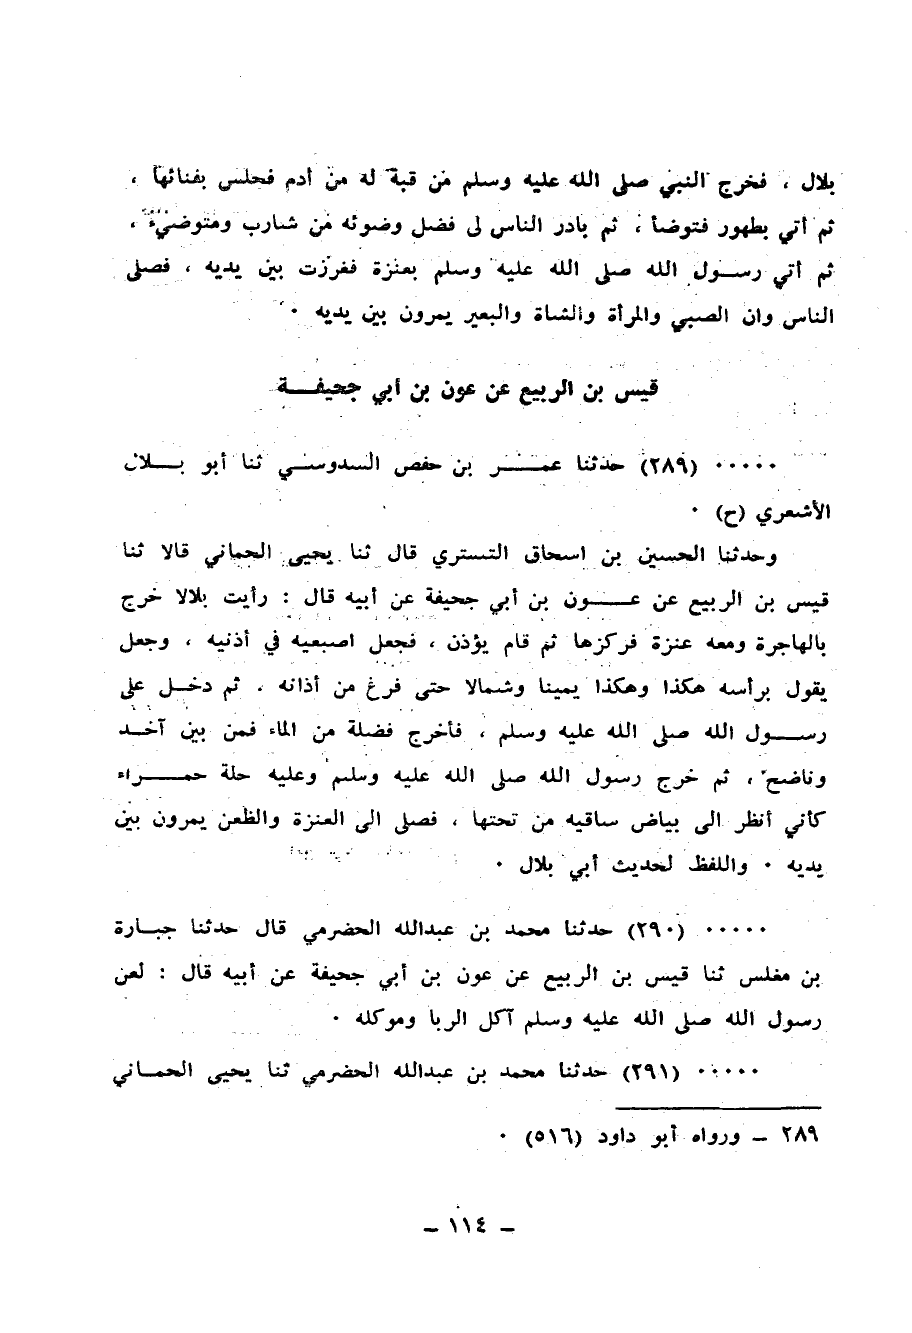 بلال ، فخرج النبي صلى الله عليه وسلم من قبة له من أدم فجلس بفنائها ،
ثم أتي بطهور فتوضأ ، ثم بادر الناس لى فضل وضوئه من شارب ومتوضيء ،
ثم أتي رسول الله صلى الله عليه وسلم بعنزة فغرزت بين يديه ، فصلى
الناس وان الصبي والمرأة والشاة والبعير يمرون بين يديه .
قيس بن الربيع عن عون بن أبي جحيفة
..... (٢٨٩) حدثنا عمر بن حفص السدوسي ثنا أبو بلال
الأشعري (ح) .
وحدثنا الحسين بن اسحاق التستري قال ثنا يحيى الحماني قالا ثنا
قيس بن الربيع عن عون بن أبي جحيفة عن أبيه قال : رأيت بلالا خرج
بالهاجرة ومعه عنزة فركزها ثم قام يؤذن ، فجعل اصبعيه في أذنيه ، وجعل
يقول برأسه هكذا وهكذا يمينا وشمالا حتى فرغ من أذانه . ثم دخل على
رسول الله صلى الله عليه وسلم ، فأخرج فضلة من الماء فمن بين آخد
وناضح ، ثم خرج رسول الله صلى الله عليه وسلم وعليه حلة حمراء
كأني أنظر الى بياض ساقيه من تحتها ، فصلى الى العنزة والظعن يمرون بين
يديه . واللفظ لحديث أبي بلال .
..... (٢٩٠) حدثنا محمد بن عبدالله الحضرمي قال حدثنا جبارة
بن مغلس ثنا قيس بن الربيع عن عون بن أبي جحيفة عن أبيه قال : لعن
رسول الله صلى الله عليه وسلم آكل الربا وموكله .
..... (٢٩١) حدثنا محمد بن عبدالله الحضرمي ثنا يحيى الحماني
٢٨٩ – ورواه أبو داود (٥١٦) .
– ١١٤ –